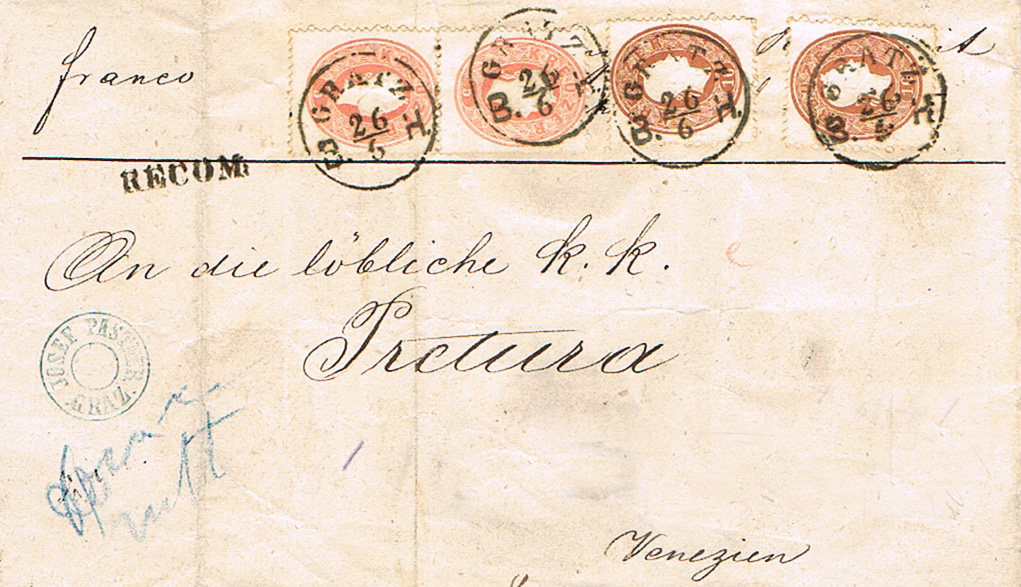 franco
GRATZ 26/6 B. H.
GRATZ 26/6 B. H.
GRATZ 26/6 B. H.
GRATZ 26/6 B. H.
RECOM.
An die löbliche k. k.
Pretura
JOSEF PASTNER GRAZ.
Venezien